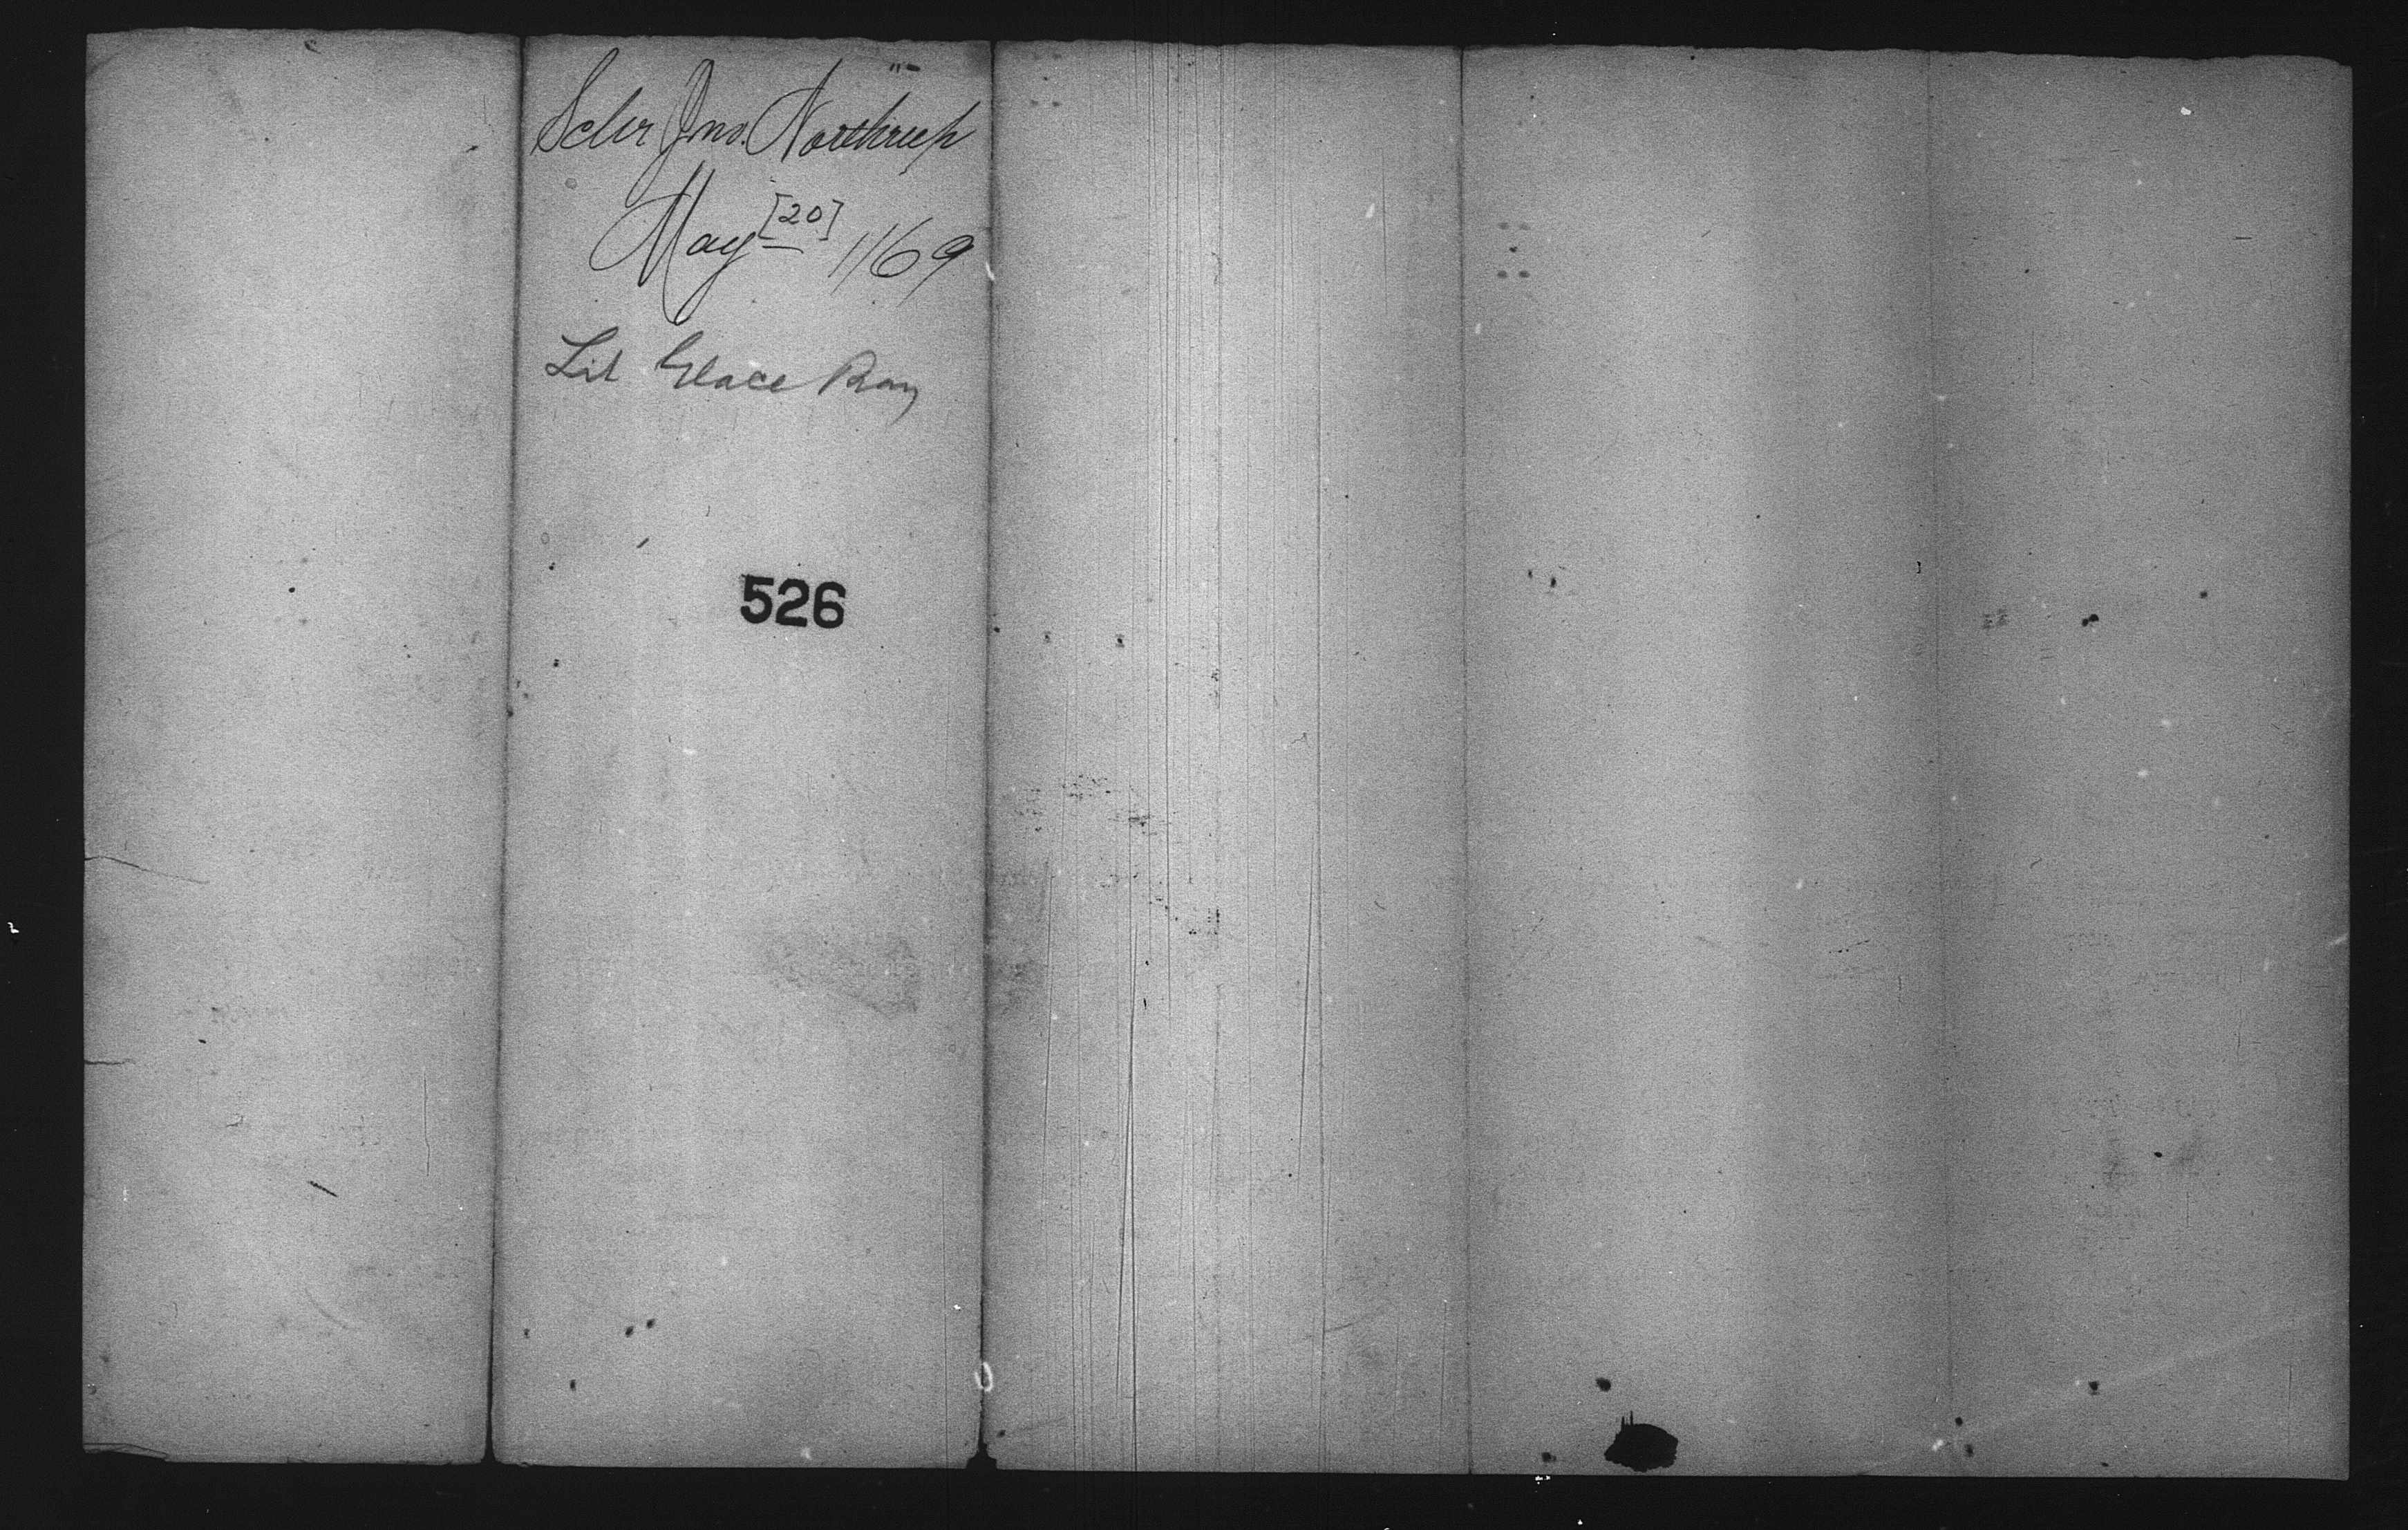 Schr Jno. Northrup
May [20] 1169
Lit Glace Bay
526